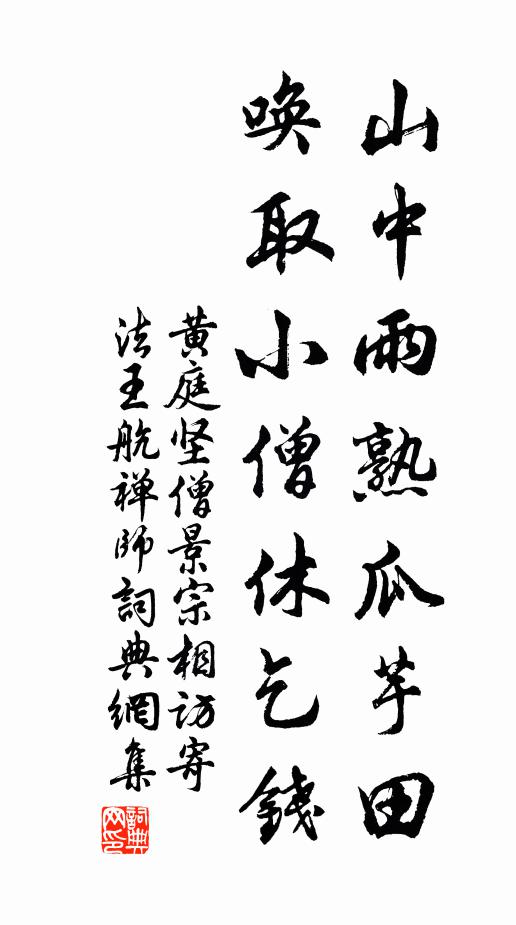 山中雨熟瓜芋田
唤取小僧休乞錢
黄庭坚僧景宗相訪寄
法王航禅師詞典網集
詞典
网印